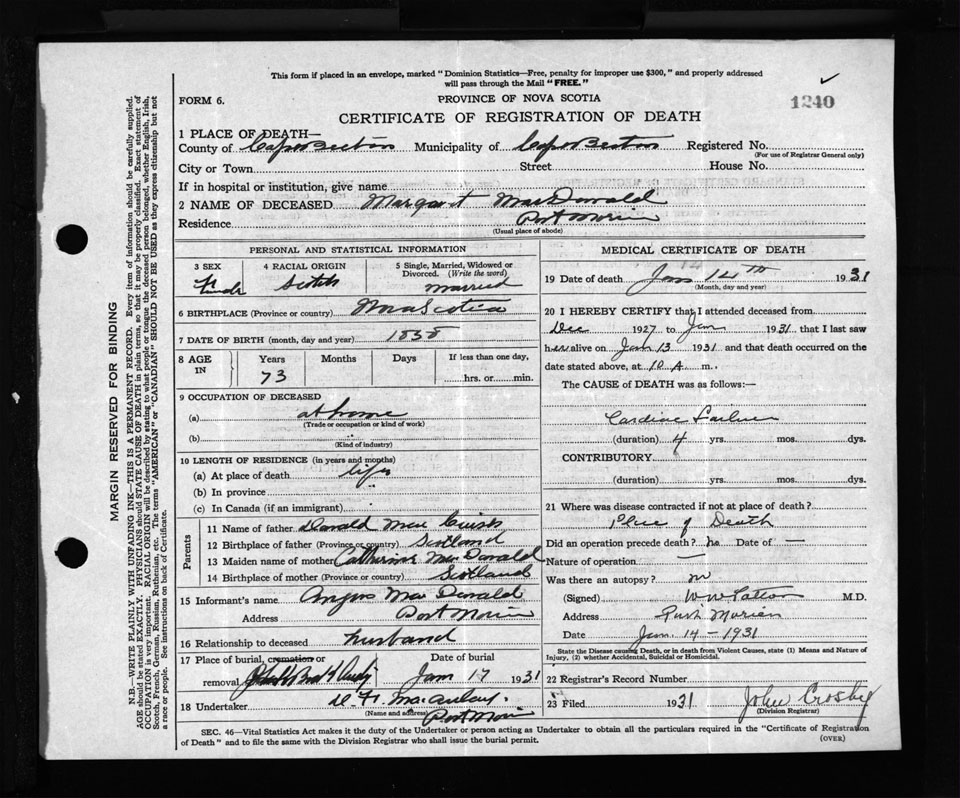 This form if placed in an envelope, marked "Dominion Statistics—Free, penalty for improper use $300," and properly addressed
will pass through the Mail "FREE."
FORM 6.
PROVINCE OF NOVA SCOTIA
1240
CERTIFICATE OF REGISTRATION OF DEATH
1 PLACE OF DEATH—
County of Cape Breton Municipality of Cape Breton Registered No.
(For use of Registrar General only)
City or Town Street House No.
If in hospital or institution, give name
2 NAME OF DECEASED Margaret MacDonald
Residence Port Morien
(Usual place of abode)
PERSONAL AND STATISTICAL INFORMATION
3 SEX
Female
4 RACIAL ORIGIN
Scotch
5 Single, Married, Widowed or
Divorced. (Write the word)
married
6 BIRTHPLACE (Province or country) Nova Scotia
7 DATE OF BIRTH (month, day and year) 1858
8 AGE
IN
Years
73
Months
Days
If less than one day,
hrs. or min.
9 OCCUPATION OF DECEASED
(a) at home
(Trade or occupation or kind of work)
(b)
(Kind of industry)
10 LENGTH OF RESIDENCE (in years and months)
(a) At place of death life
(b) In province "
(c) In Canada (if an immigrant) "
Parents
11 Name of father Donald Mac
12 Birthplace of father (Province or country) Scotland
13 Maiden name of mother Catherine MacDonald
14 Birthplace of mother (Province or country) Scotland
15 Informant's name Angus MacDonald
Address Port Morien
16 Relationship to deceased husband
17 Place of burial, cremation or
removal
Date of burial
Jan 17 1931
18 Undertaker D. F. MacAulay.
(Name and address) Port Morien
MEDICAL CERTIFICATE OF DEATH
19 Date of death Jan 14th 1931
(Month, day and year)
20 I HEREBY CERTIFY that I attended deceased from
Dec 1927 to Jan 1931 that I last saw
her alive on Jan 13 1931 and that death occurred on the
date stated above, at 10 A. m.
The CAUSE of DEATH was as follows:—
Cardiac Failure
(duration) 4 yrs. mos. dys.
CONTRIBUTORY
(duration) yrs. mos. dys.
21 Where was disease contracted if not at place of death?
Place of Death
Did an operation precede death? no Date of —
Nature of operation —
Was there an autopsy? no
(Signed) W W Patton M.D.
Address Port Morien
Date Jan 14 - 1931
State the Disease causing Death, or in death from Violent Causes, state (1) Means and Nature of
Injury, (2) whether Accidental, Suicidal or Homicidal.
22 Registrar's Record Number
23 Filed 1931 John Crosby
(Division Registrar)
SEC. 46—Vital Statistics Act makes it the duty of the Undertaker or person acting as Undertaker to obtain all the particulars required in the "Certificate of Registration
of Death" and to file the same with the Division Registrar who shall issue the burial permit.
(OVER)
MARGIN RESERVED FOR BINDING
N.B.—WRITE PLAINLY WITH UNFADING INK—THIS IS A PERMANENT RECORD. Every item of information should be carefully supplied.
AGE should be stated EXACTLY. PHYSICIANS should STATE CAUSE OF DEATH in plain terms, so that it may be properly classified. Exact statement of
OCCUPATION is very important. RACIAL ORIGIN will be described by stating to what people or tongue the deceased person belonged, whether English, Irish,
Scotch, French, German, Russian, Ruthenian, etc. The terms "AMERICAN" or "CANADIAN" SHOULD NOT BE USED as they express citizenship but not
a race or people. See instructions on back of Certificate.